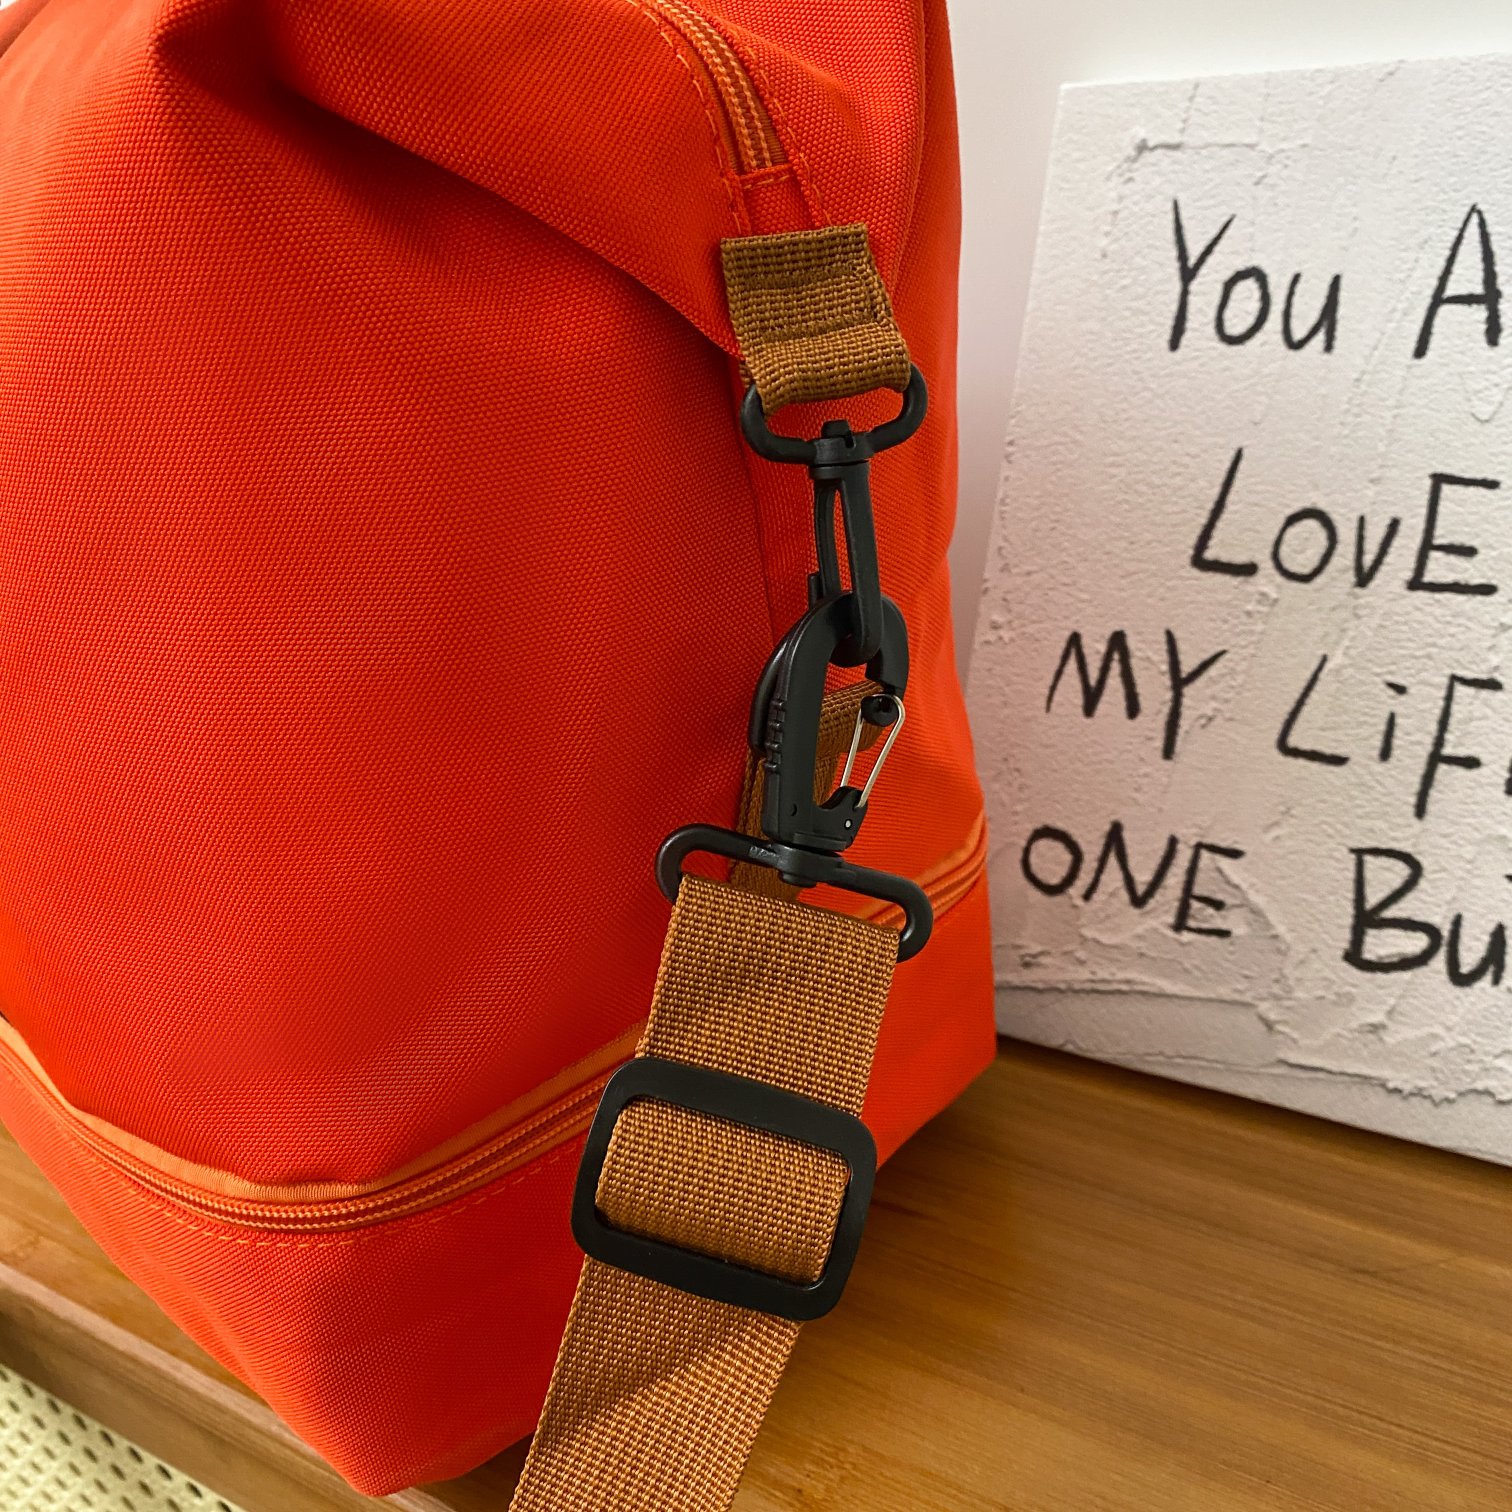 You A
LovE
MY LiF
ONE Bu